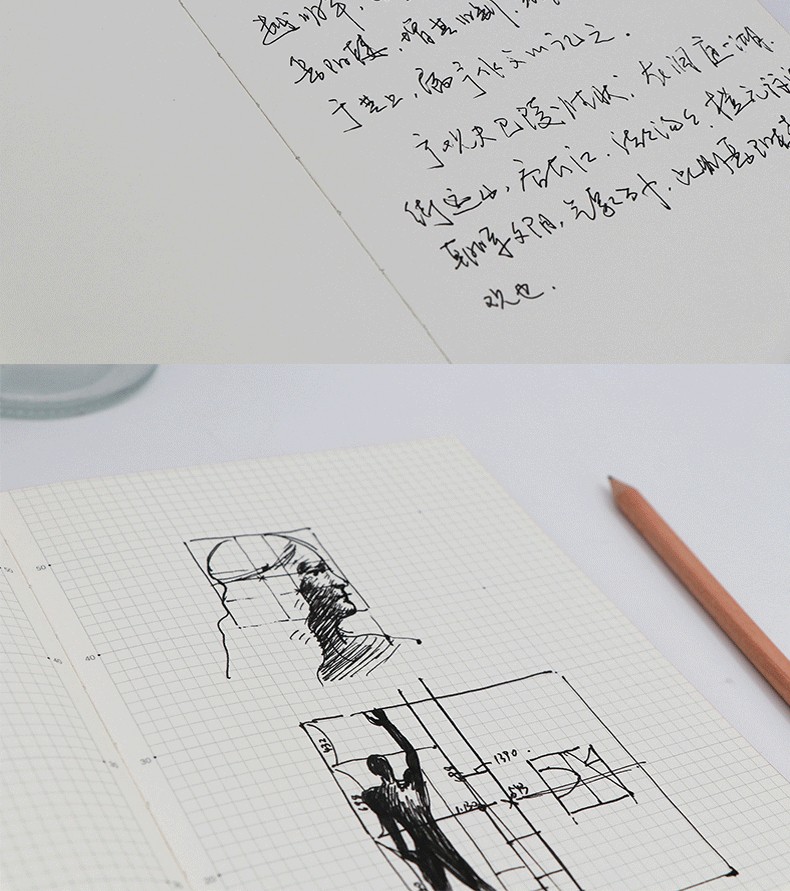 越明年,
岳阳楼,增其旧制,
于其上,属予作文以记之.
予观夫巴陵胜状,在洞庭一湖.
衔远山,吞长江,浩浩汤汤,横无际
朝晖夕阴,气象万千.此则岳阳楼
观也.
50
40
30
1390